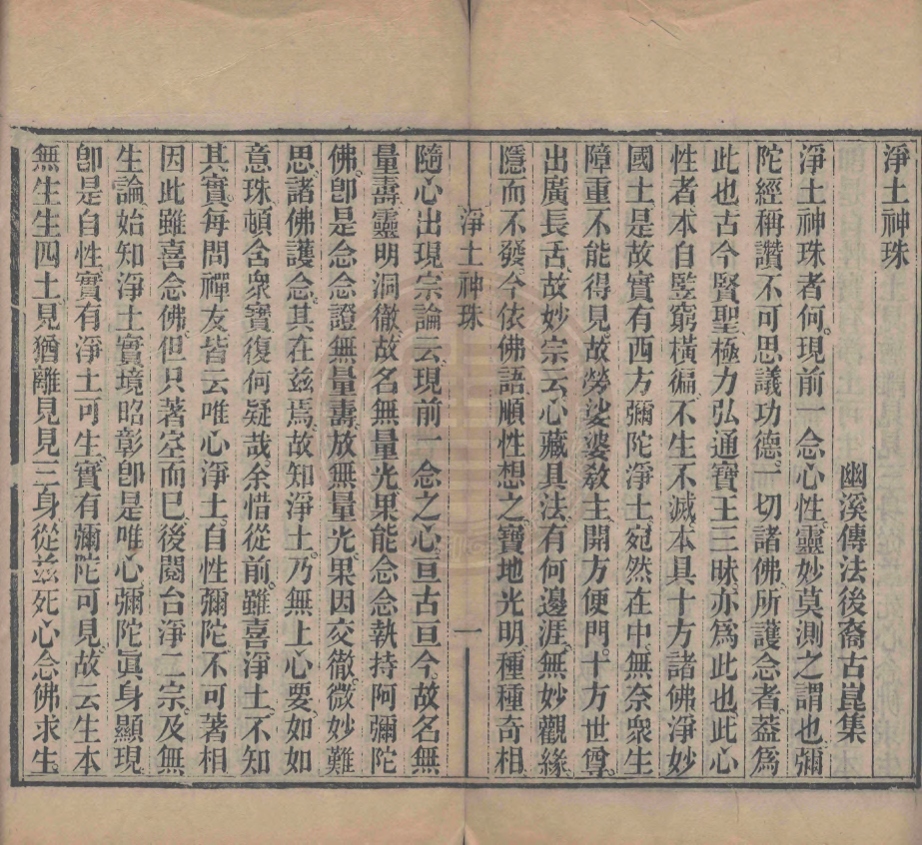 淨土神珠
幽溪傳法後裔古崑集
淨土神珠者何現前一念心性靈妙莫測之謂也彌
陀經稱讚不可思議功德一切諸佛所護念者蓋爲
此也古今賢聖極力弘通寶王三昧亦爲此也此心
性者本自豎窮橫徧不生不滅本具十方諸佛淨妙
國土是故實有西方彌陀淨土宛然在中無奈衆生
障重不能得見故勞娑婆教主開方便門十方世尊
出廣長舌故妙宗云心藏具法有何邊涯無妙觀緣
隱而不發今依佛語順性想之寶地光明種種奇相
淨土神珠 一
隨心出現宗論云現前一念之心亘古亘今故名無
量壽靈明洞徹故名無量光果能念念執持阿彌陀
佛卽是念念證無量壽放無量光果因交徹微妙難
思諸佛護念其在兹焉故知淨土乃無上心要如如
意珠頓舍衆寶復何疑哉余惜從前雖喜淨土不知
其實每問禪友皆云唯心淨土自性彌陀不可著相
因此雖喜念佛但只著空而巳後閱台淨二宗及無
生論始知淨土實境昭彰卽是唯心彌陀眞身顯現
卽是自性實有淨土可生實有彌陀可見故云生本
無生生四土見猶離見見三身從兹死心念佛求生